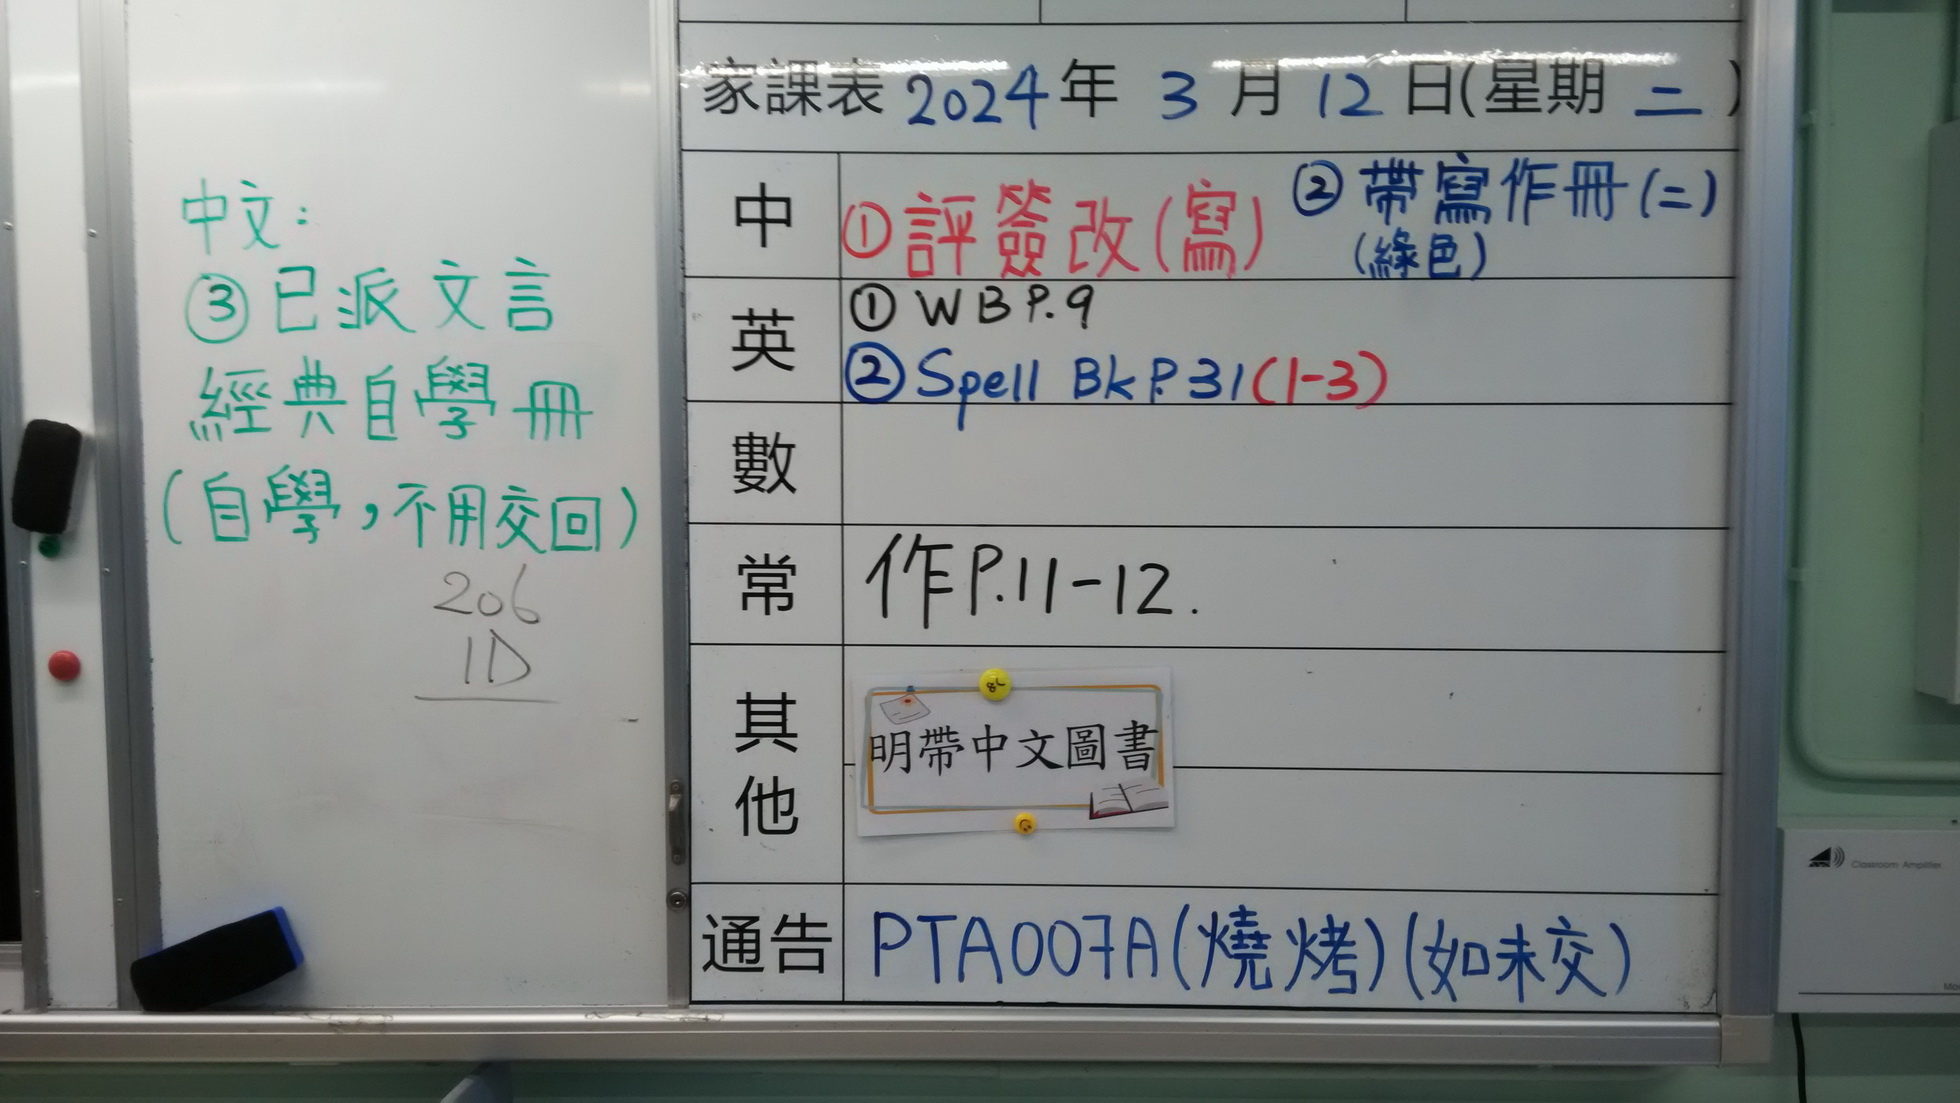 中文:
③已派文言
經典自學冊
(自學,不用交回)
206
1D
家課表 2024年 3月 12日(星期 二)
中
①評簽改(寫)
②帶寫作冊(二)
(綠色)
英
① WB P.9
② Spell Bk P.31(1-3)
數
常
作P.11-12.
其他
明帶中文圖書
通告
PTA007A(燒烤)(如未交)
Classroom Amplifier